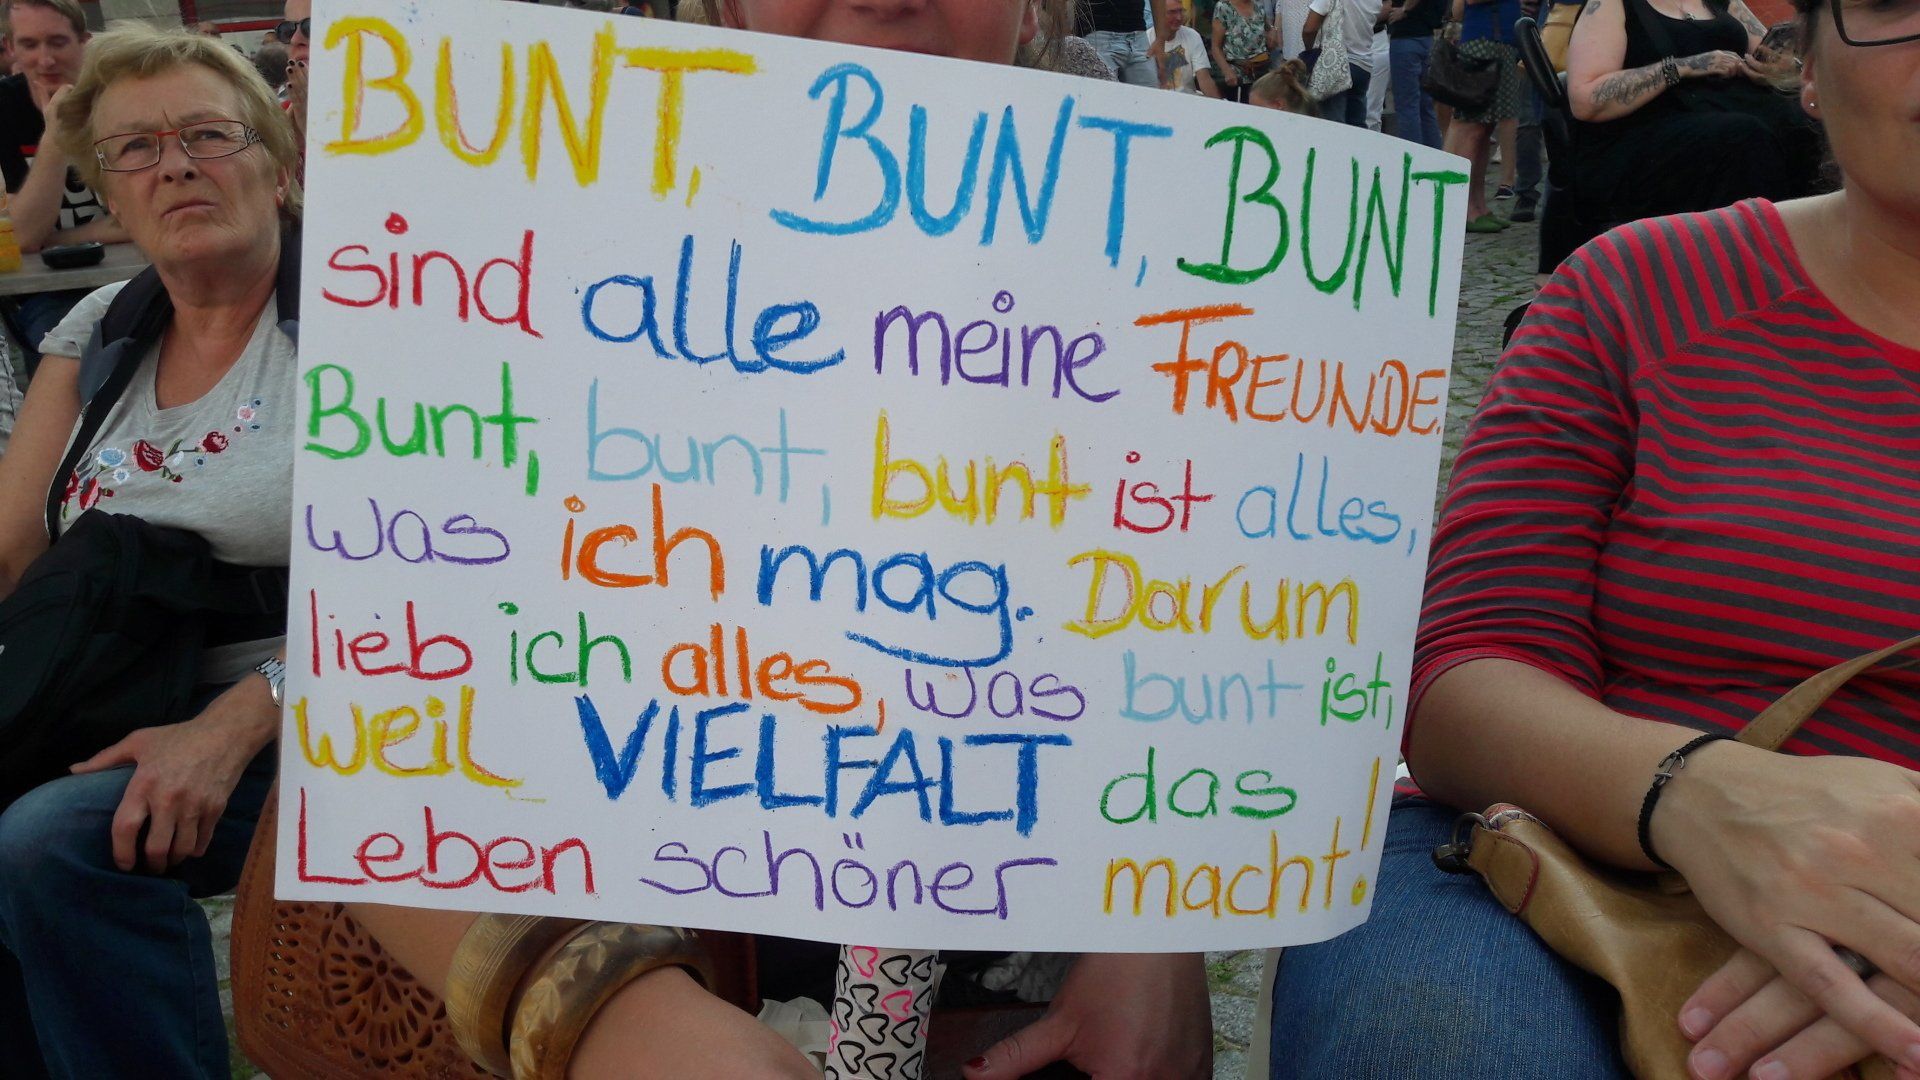 BUNT, BUNT, BUNT
sind alle meine FREUNDE.
Bunt, bunt, bunt ist alles,
was ich mag. Darum
lieb ich alles, was bunt ist,
weil VIELFALT das
Leben schöner macht!